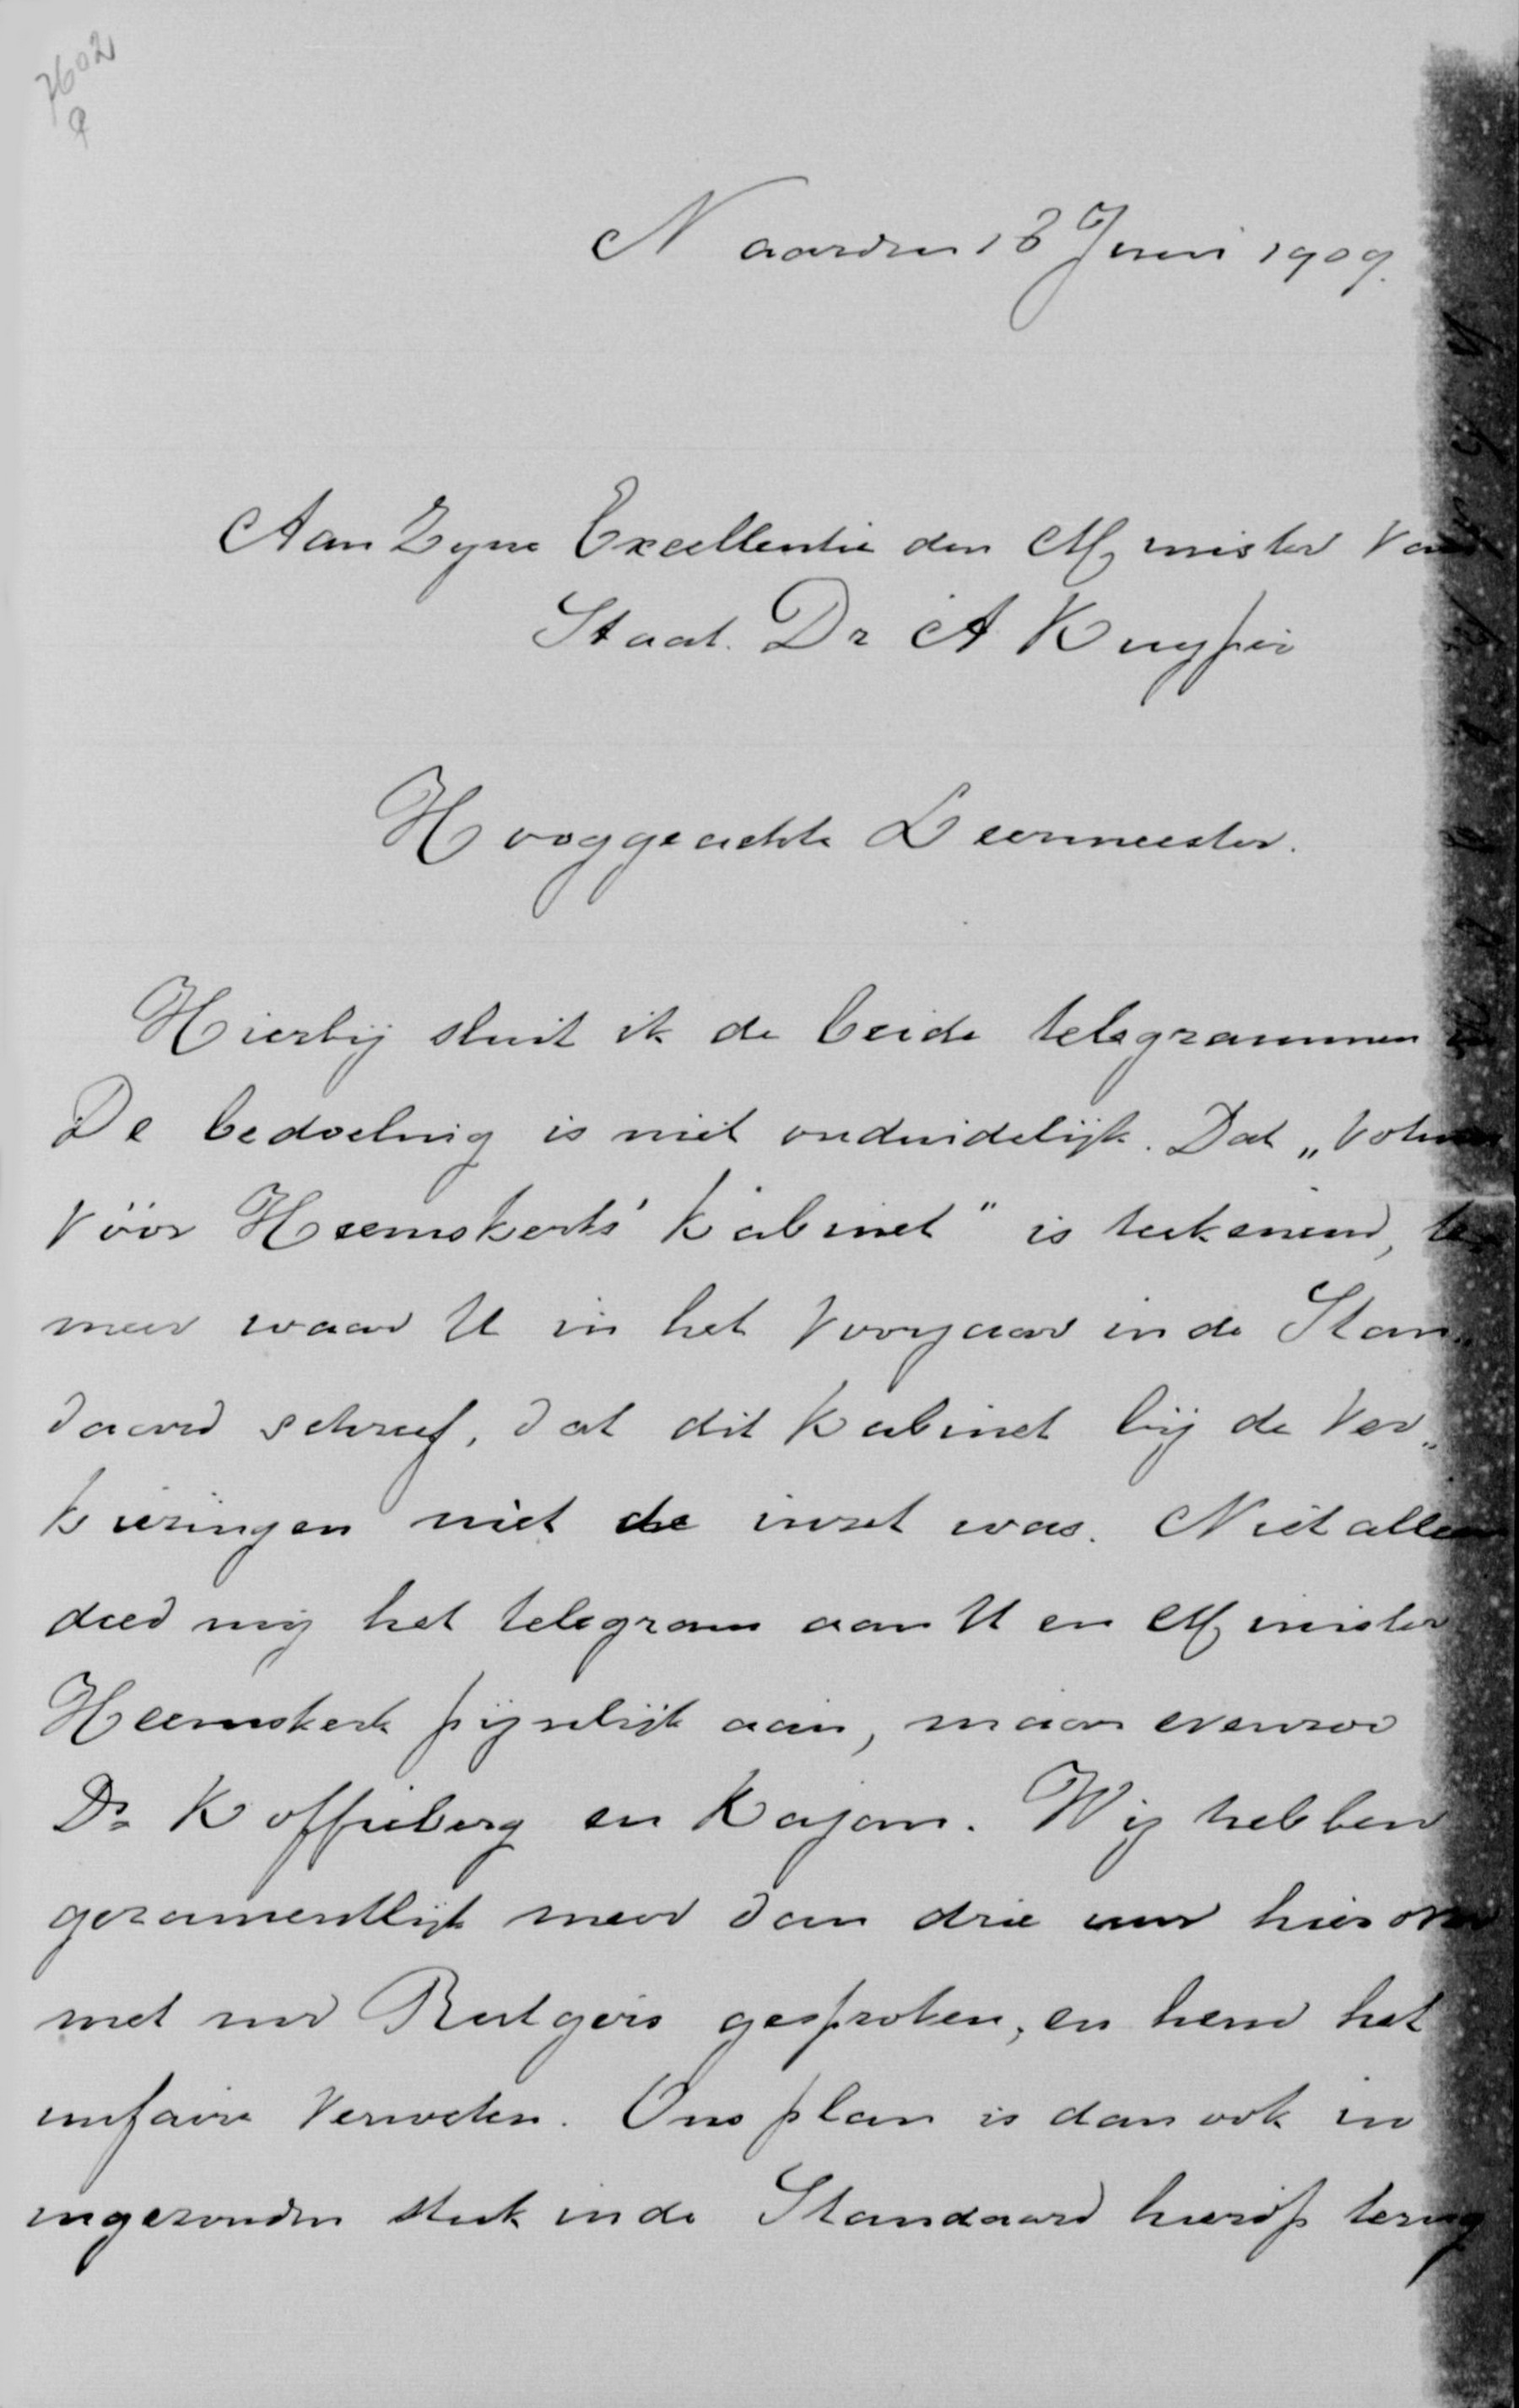 7602
a
Naarden 18 Juni 1909.
Aan Zijne Excellentie den Minister van
Staat. Dr A Kuyper
Hooggeachte Leermeester.
Hierbij sluit ik de beide telegrammen
De bedoeling is niet onduidelijk. Dat „Votum
vóór Heemskerk's Kabinet" is teekenend, te
meer waar U in het Voorjaar in de Stan„
daard schreef, dat dit Kabinet bij de Ver„
kiezingen niet de inzet was. Niet alleen
deed mij het telegram aan U en Minister
Heemskerk pijnlijk aan, maar evenzoo
Ds Koffieberg en Kajan. Wij hebben
gezamentlijk meer dan drie uur hierover
met mr Rutgers gesproken, en hem het
unfaire verweten. Ons plan is dan ook in
ingezonden stuk in de Standaard hierop terug